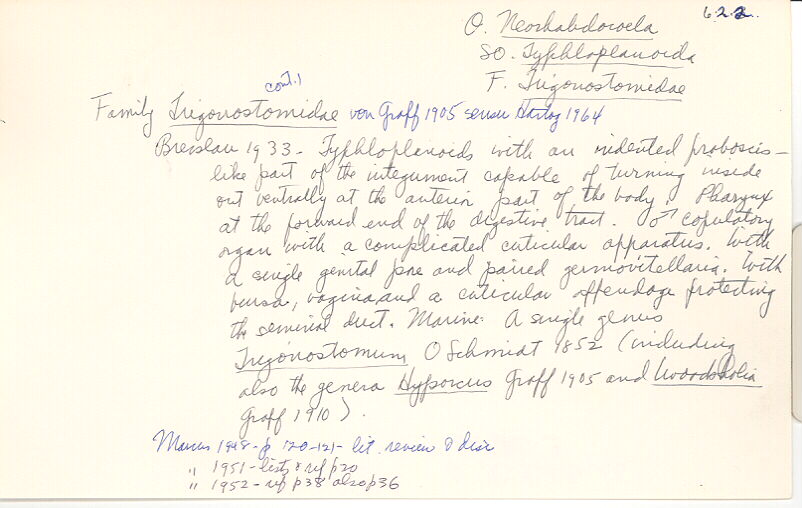 6.2.2.
O. Neorhabdocoela
SO. Typhloplanoida
F. Trigonostomidae
(cont.)
Family Trigonostomidae von Graff 1905 sensu Hartog 1964
Bresslau 1933 - Typhloplanoids with an indented proboscis-
like part of the integument capable of turning inside
out ventrally at the anterior part of the body. Pharynx
at the forward end of the digestive tract. ♂ copulatory
organ with a complicated cuticular apparatus. With
a single genital pore and paired germovitellaria. With
bursa, vagina, and a cuticular appendage protecting
the seminal duct. Marine. A single genus
Trigonostomum O Schmidt 1852 (including
also the genera Hyporcus Graff 1905 and Woodsholia
Graff 1910).
Marcus 1948 - p 120-121 - lit. review & disc
" 1951 - lists & ref p20
" 1952 - ref p38 also p36